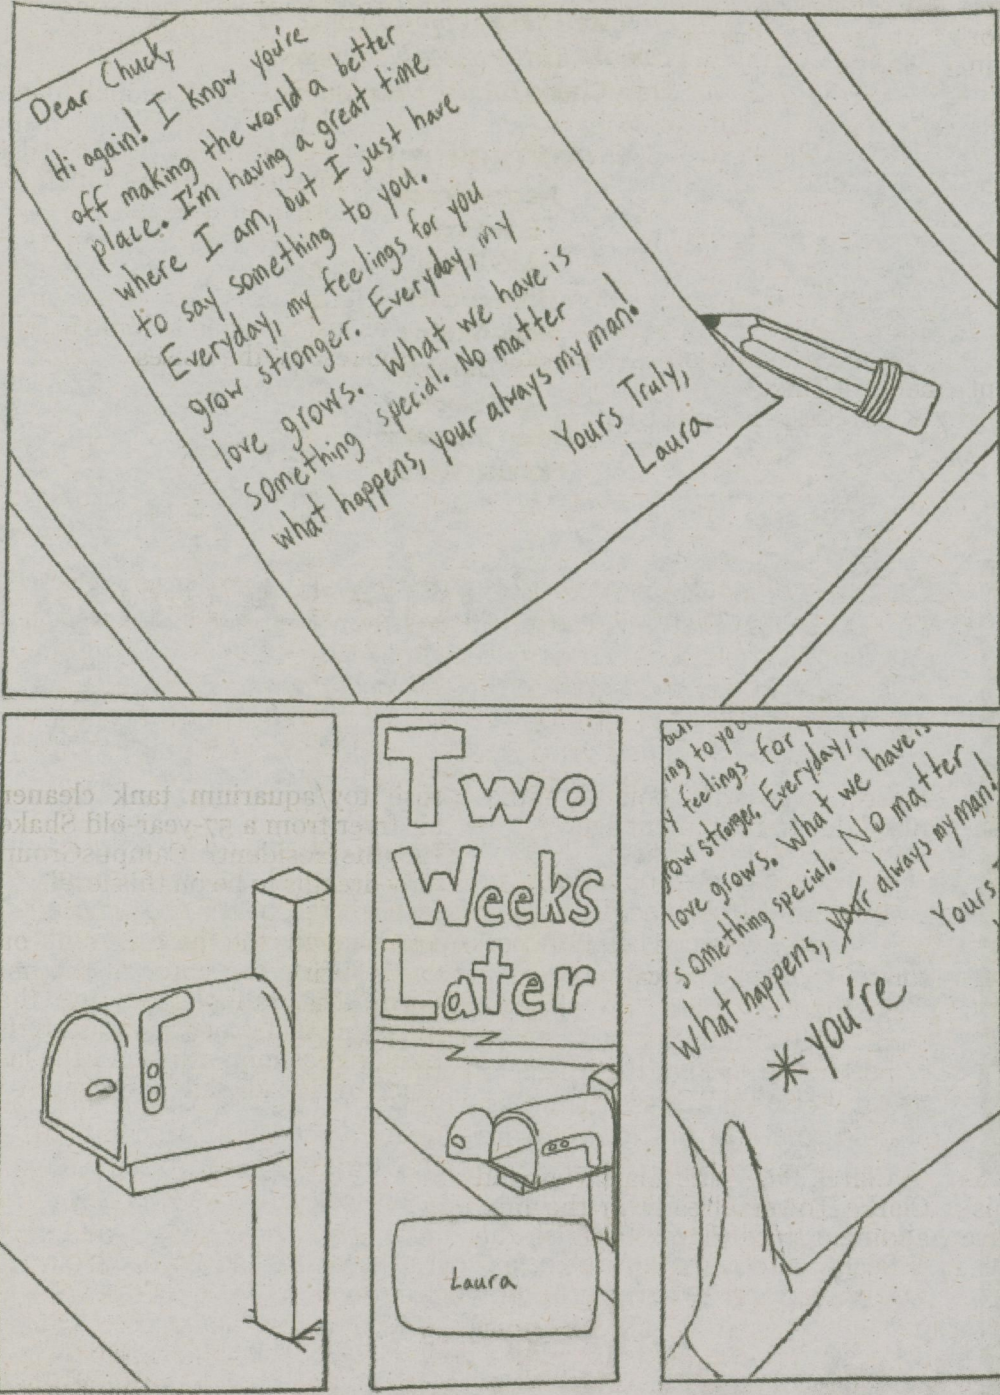 Dear Chuck,
Hi again! I know you're
off making the world a better
place. I'm having a great time
where I am, but I just have
to say something to you.
Everyday, my feelings for you
grow stronger. Everyday, my
love grows. What we have is
something special. No matter
what happens, your always my man!
Yours Truly,
Laura
Two
Weeks
Later
Laura
but
ing to you
y feelings for y
row stronger. Everyday, m
love grows. What we have is
something special. No matter
what happens, your always my man!
Yours T
*you're
toy/aquarium tank cleaner
from a 57-year-old Shake